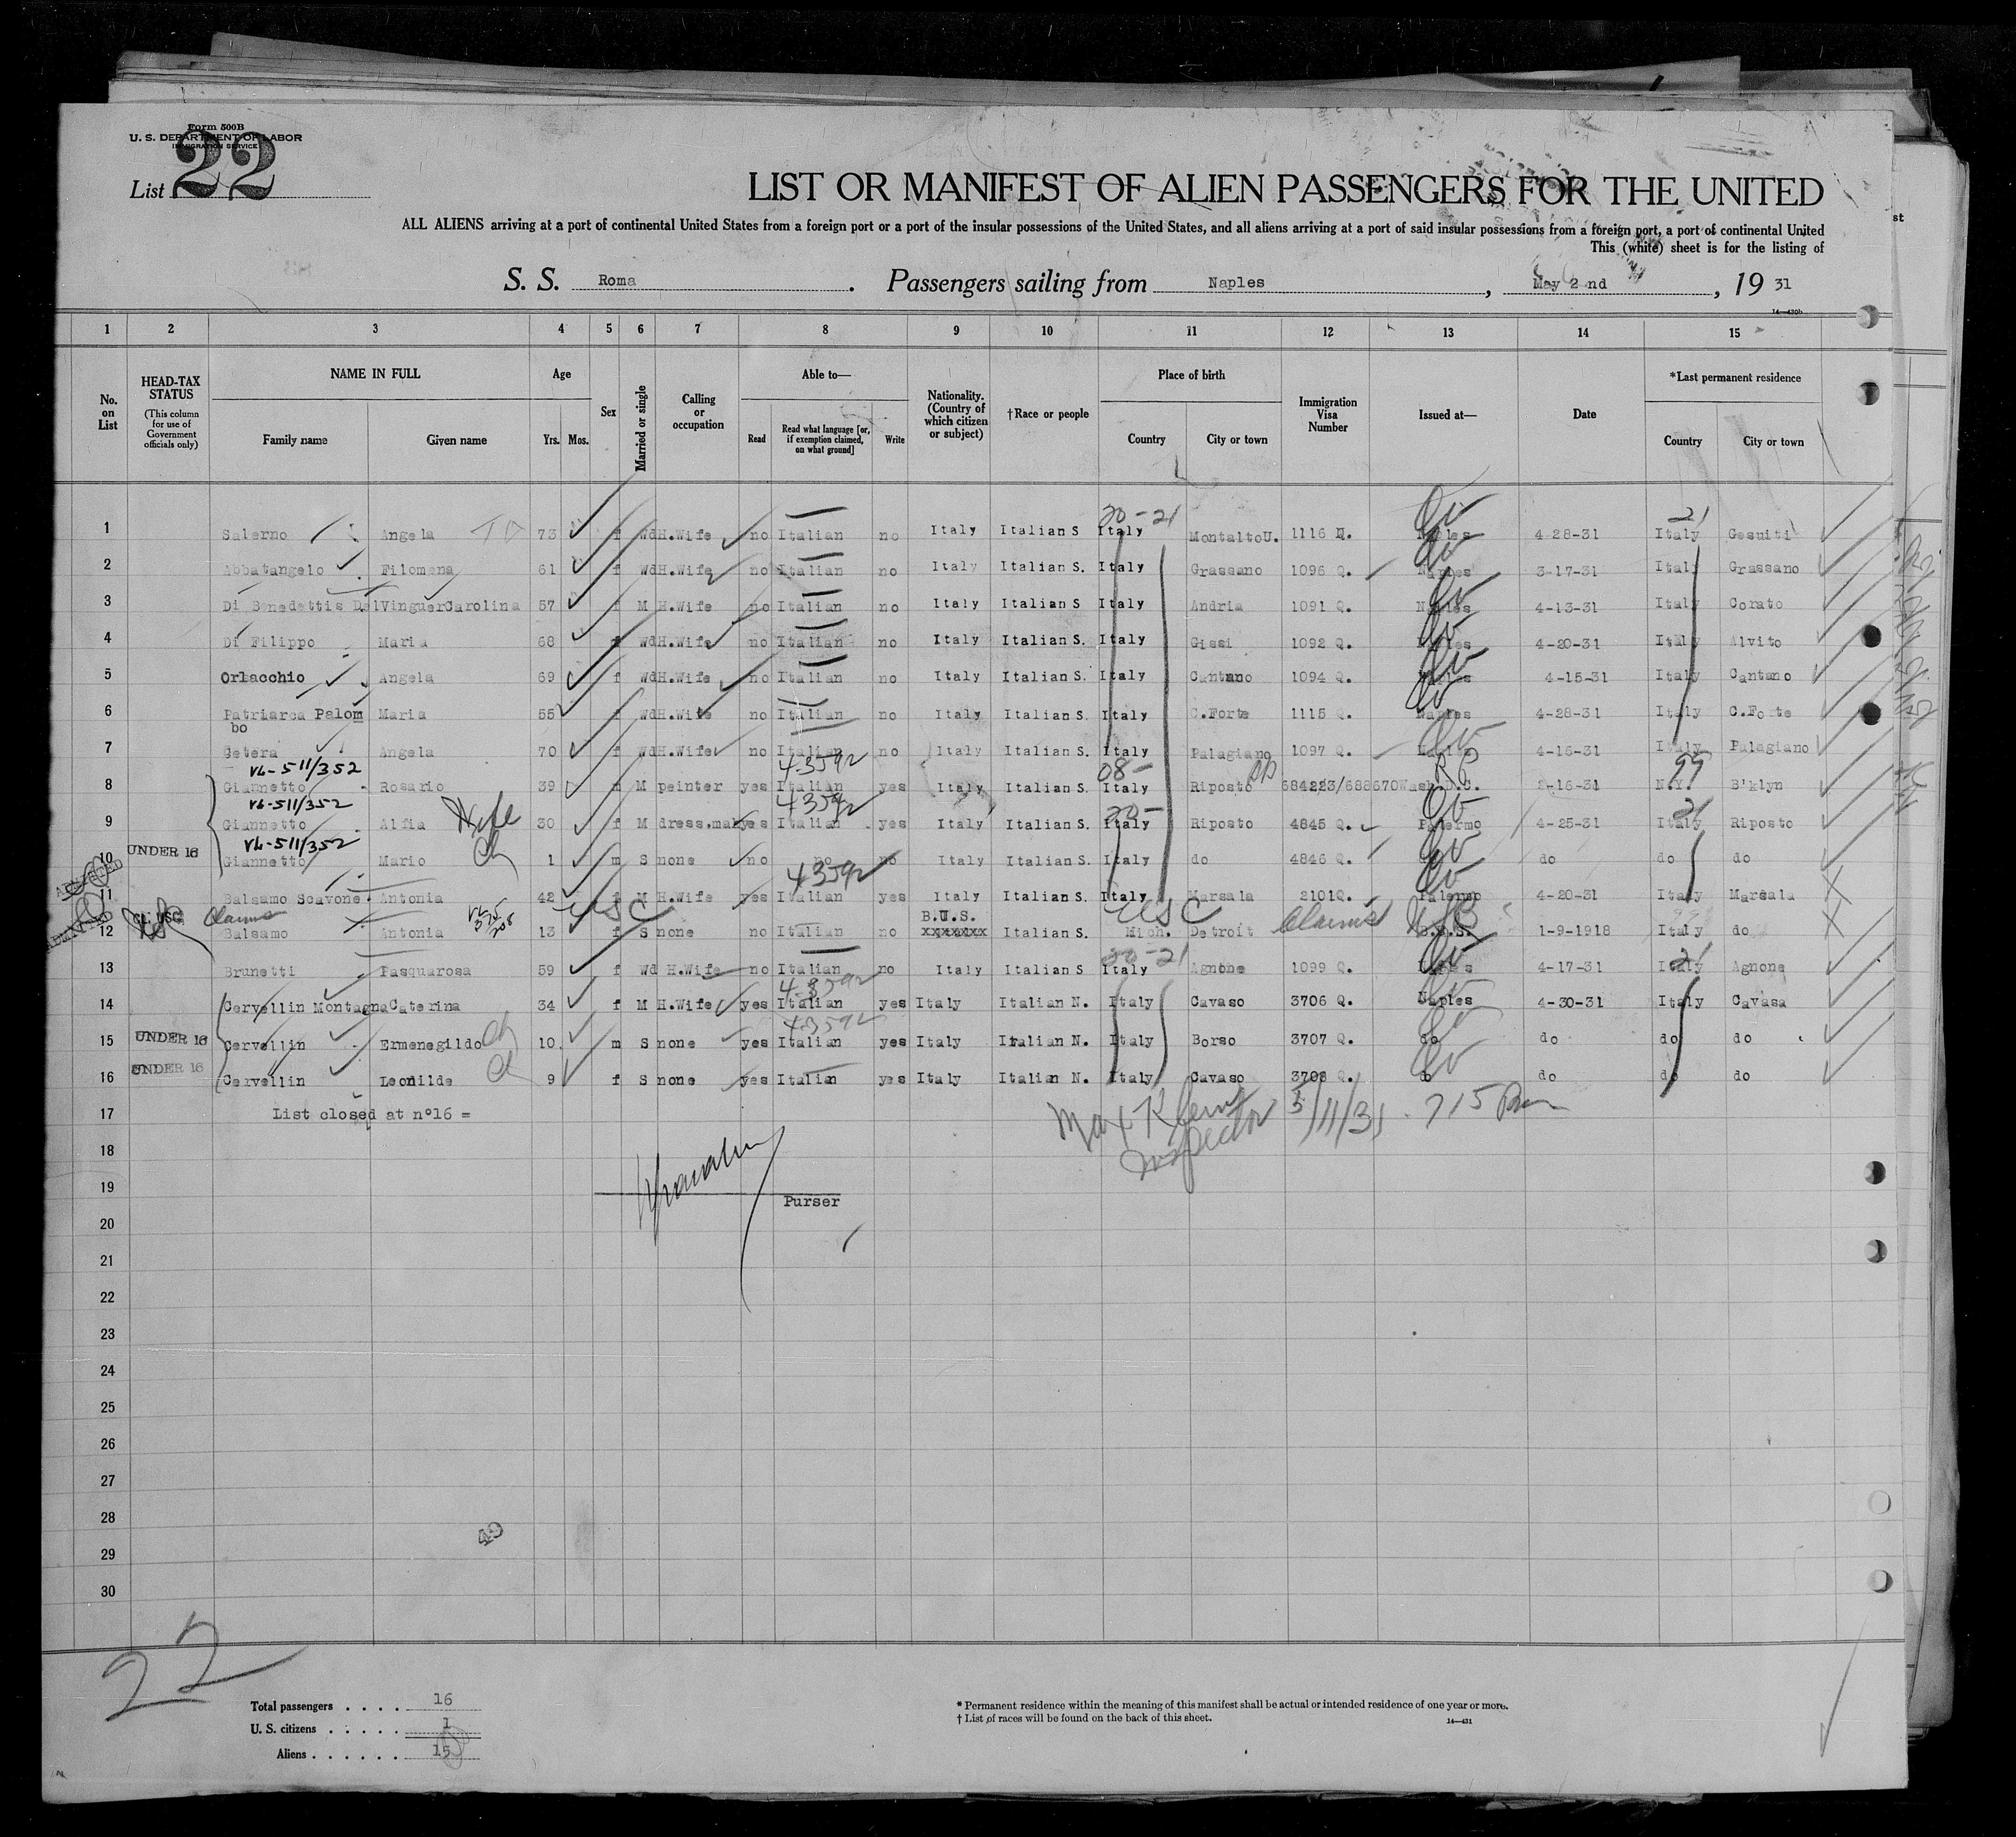 Form 500B
U. S. DEPARTMENT OF LABOR
IMMIGRATION SERVICE
List 22
LIST OR MANIFEST OF ALIEN PASSENGERS FOR THE UNITED
ALL ALIENS arriving at a port of continental United States from a foreign port or a port of the insular possessions of the United States, and all aliens arriving at a port of said insular possessions from a foreign port, a port of continental United
This (white) sheet is for the listing of
st
S. S. Roma. Passengers sailing from Naples, May 2nd, 19 31
14—430b
1 2 3 4 5 6 7 8 9 10 11 12 13 14 15
No. on List
HEAD-TAX STATUS (This column for use of Government officials only)
NAME IN FULL Family name Given name
Age Yrs. Mos.
Sex
Married or single
Calling or occupation
Able to— Read Read what language [or, if exemption claimed, on what ground] Write
Nationality. (Country of which citizen or subject)
†Race or people
Place of birth Country City or town
Immigration Visa Number
Issued at—
Date
*Last permanent residence Country City or town
20-21 21
1 Salerno Angela 73 f Wd H.Wife no Italian no Italy Italian S Italy MontaltoU. 1116 Naples 4-28-31 Italy Gesuiti
2 Abbatangelo Filomena 61 f Wd H.Wife no Italian no Italy Italian S. Italy Grassano 1096 Q. Naples 3-17-31 Italy Grassano
3 Di Benedettis DelVinguerCarolina 57 f M H.Wife no Italian no Italy Italian S Italy Andria 1091 Q. Naples 4-13-31 Italy Corato
4 Di Filippo Maria 68 f Wd H.Wife no Italian no Italy Italian S. Italy Gissi 1092 Q. Naples 4-20-31 Italy Alvito
5 Orlacchio Angela 69 f Wd H.Wife no Italian no Italy Italian S. Italy Cantano 1094 Q. Naples 4-15-31 Italy Cantano
6 Patriarca Palom Maria 55 f Wd H.Wife no Italian no Italy Italian S. Italy C.Forte 1115 Q. Naples 4-28-31 Italy C.Forte
bo
7 Getera Angela 70 f Wd H.Wife no Italian no Italy Italian S. Italy Palagiano 1097 Q. Naples 4-16-31 Italy Palagiano
VL-511/352 43592 08- RP 99
8 Giannetto Rosario 39 m M peinter yes Italian yes Italy Italian S. Italy Riposto 684223/688670Wash.D.C. 2-16-31 N.Y. B'klyn
VL-511/352 Wife 43592 20- 21
9 Giannetto Alfia 30 f M dress.mak yes Italian yes Italy Italian S. Italy Riposto 4845 Q. Palermo 4-25-31 Italy Riposto
VL-511/352 Ch
10 UNDER 16 Giannetto Mario 1 m S none no no no Italy Italian S. Italy do 4846 Q. do do do do
43592
11 Balsamo Scavone Antonia 42 f M H.Wife yes Italian yes Italy Italian S. Italy Marsala 2101Q. Palermo 4-20-31 Italy Marsala
CL. USC Claims USC B.U.S. USC Claims
12 Balsamo Antonia 13 f S none no Italian no xxxxxxx Italian S. Mich. Detroit 1-9-1918 Italy do
20-21 21
13 Brunetti Pasquarosa 59 f Wd H.Wife no Italian no Italy Italian S Italy Agnone 1099 Q. Naples 4-17-31 Italy Agnone
43592
14 Cervellin Montagna Caterina 34 f M H.Wife yes Italian yes Italy Italian N. Italy Cavaso 3706 Q. Naples 4-30-31 Italy Cavasa
43592
15 UNDER 16 Cervellin Ermenegildo Ch 10 m S none yes Italian yes Italy Italian N. Italy Borso 3707 Q. do do do do
16 UNDER 16 Cervellin Leonilde Ch 9 f S none yes Italian yes Italy Italian N. Italy Cavaso 3708 Q. do do do do
17 List closed at n°16 =
Max Klein 5/11/31. 715 Pm
Inspector
18
19
Purser
20
21
22
23
24
25
26
27
28
49
29
30
22
Total passengers . . . . 16
U. S. citizens . . . . . 1
Aliens . . . . . . 15
* Permanent residence within the meaning of this manifest shall be actual or intended residence of one year or more.
† List of races will be found on the back of this sheet.
14—431